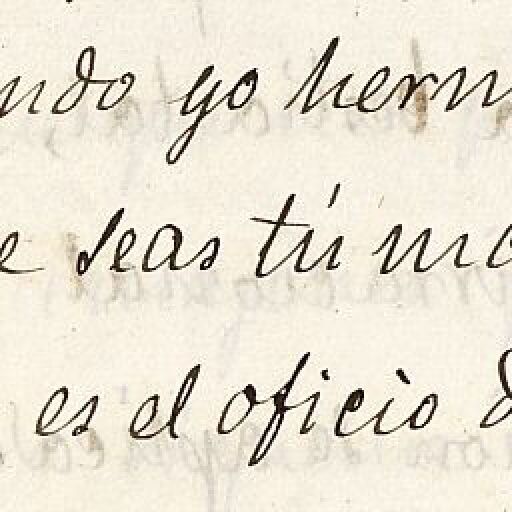 ndo yo herm
e seas tú mo
es el oficio d